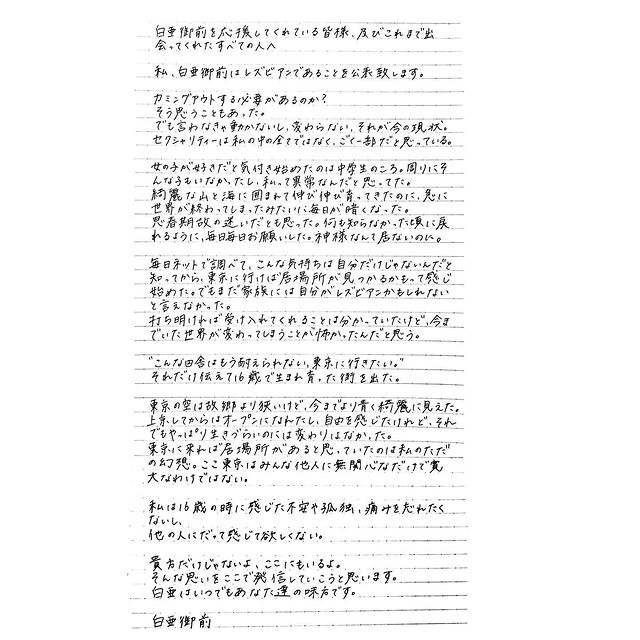 白亜御前を応援してくれている皆様、及びこれまで出
会ってくれたすべての人へ
私、白亜御前はレズビアンであることを公表致します。
カミングアウトする必要があるのか?
そう思うこともあった。
でも言わなきゃ動かないし、変わらない、それが今の現状。
セクシャリティーは私の中の全てではなく、ごく一部だと思っている。
女の子が好きだと気付き始めたのは中学生のころ。周りにそ
んな子もいなかったし、私って異常なんだと思ってた。
綺麗な山と海に囲まれて伸び伸び育ってきたのに、急に
世界が終わってしまったみたいに毎日が暗くなった。
思春期故の迷いだとも思った。何も知らなかった頃に戻
れるように、毎日毎日お願いした。神様なんて居ないのに。
毎日ネットで調べて、こんな気持ちは自分だけじゃないんだと
知ってから、東京に行けば居場所が見つかるかもって感じ
始めた。でもまだ家族には自分がレズビアンかもしれない
と言えなかった。
打ち明ければ受け入れてくれることは分かっていたけど、今ま
でいた世界が変わってしまうことが怖かったんだと思う。
"こんな田舎はもう耐えられない、東京に行きたい。"
それだけ伝えて16歳で生まれ育った街を出た。
東京の空は故郷より狭いけど、今までより青く綺麗に見えた。
上京してからはオープンになれたし、自由を感じたけれど、それ
でもやっぱり生きづらいのには変わりはなかった。
東京に来れば居場所があると思っていたのは私のただ
の幻想。ここ東京はみんな他人に無関心なだけで寛
大なわけではない。
私は16歳の時に感じた不安や孤独、痛みを忘れたく
ないし、
他の人にだって感じて欲しくない。
貴方だけじゃないよ、ここにもいるよ。
そんな思いをここで発信していこうと思います。
白亜はいつでもあなた達の味方です。
白亜御前